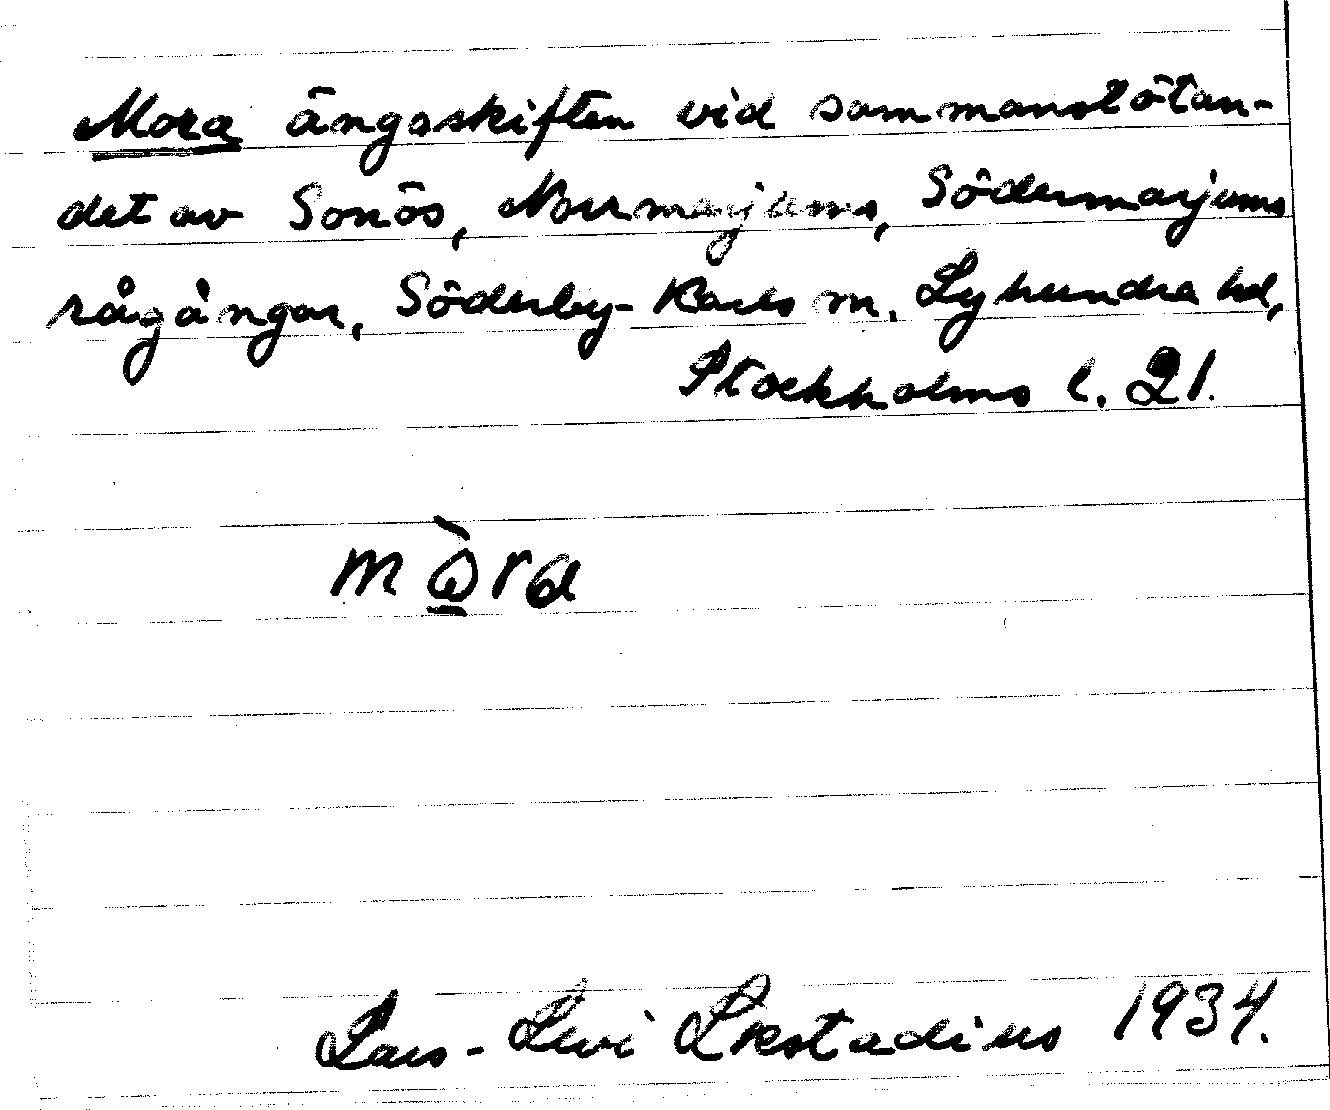 Mora ängsskiften vid sammanstötan-
det av Sonös, Norrmarjums, Södermarjums
rågångar, Söderby-Karls sn. Lyhundra hd,
Stockholms l. 21.
mò̱ra
Lars-Levi Læstadius 1934.